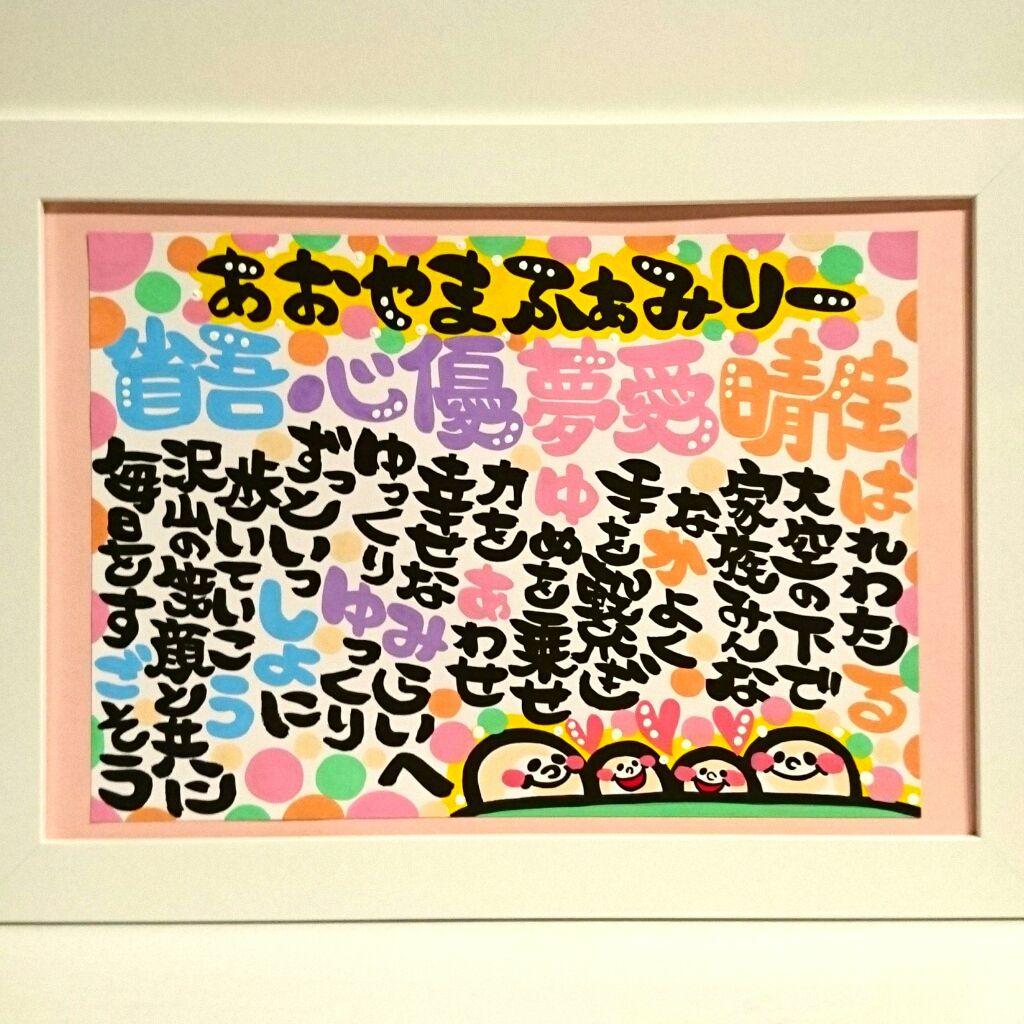 あおやまふぁみりー
省吾 心優 夢愛 晴佳
はれわたる
大空の下で
家族みんな
なかよく
手を繋ぎ
ゆめを乗せ
力をあわせ
幸せなみらいへ
ゆっくりゆっくり
ずっといっしょに
歩いていこう
沢山の笑顔と共に
毎日をすごそう